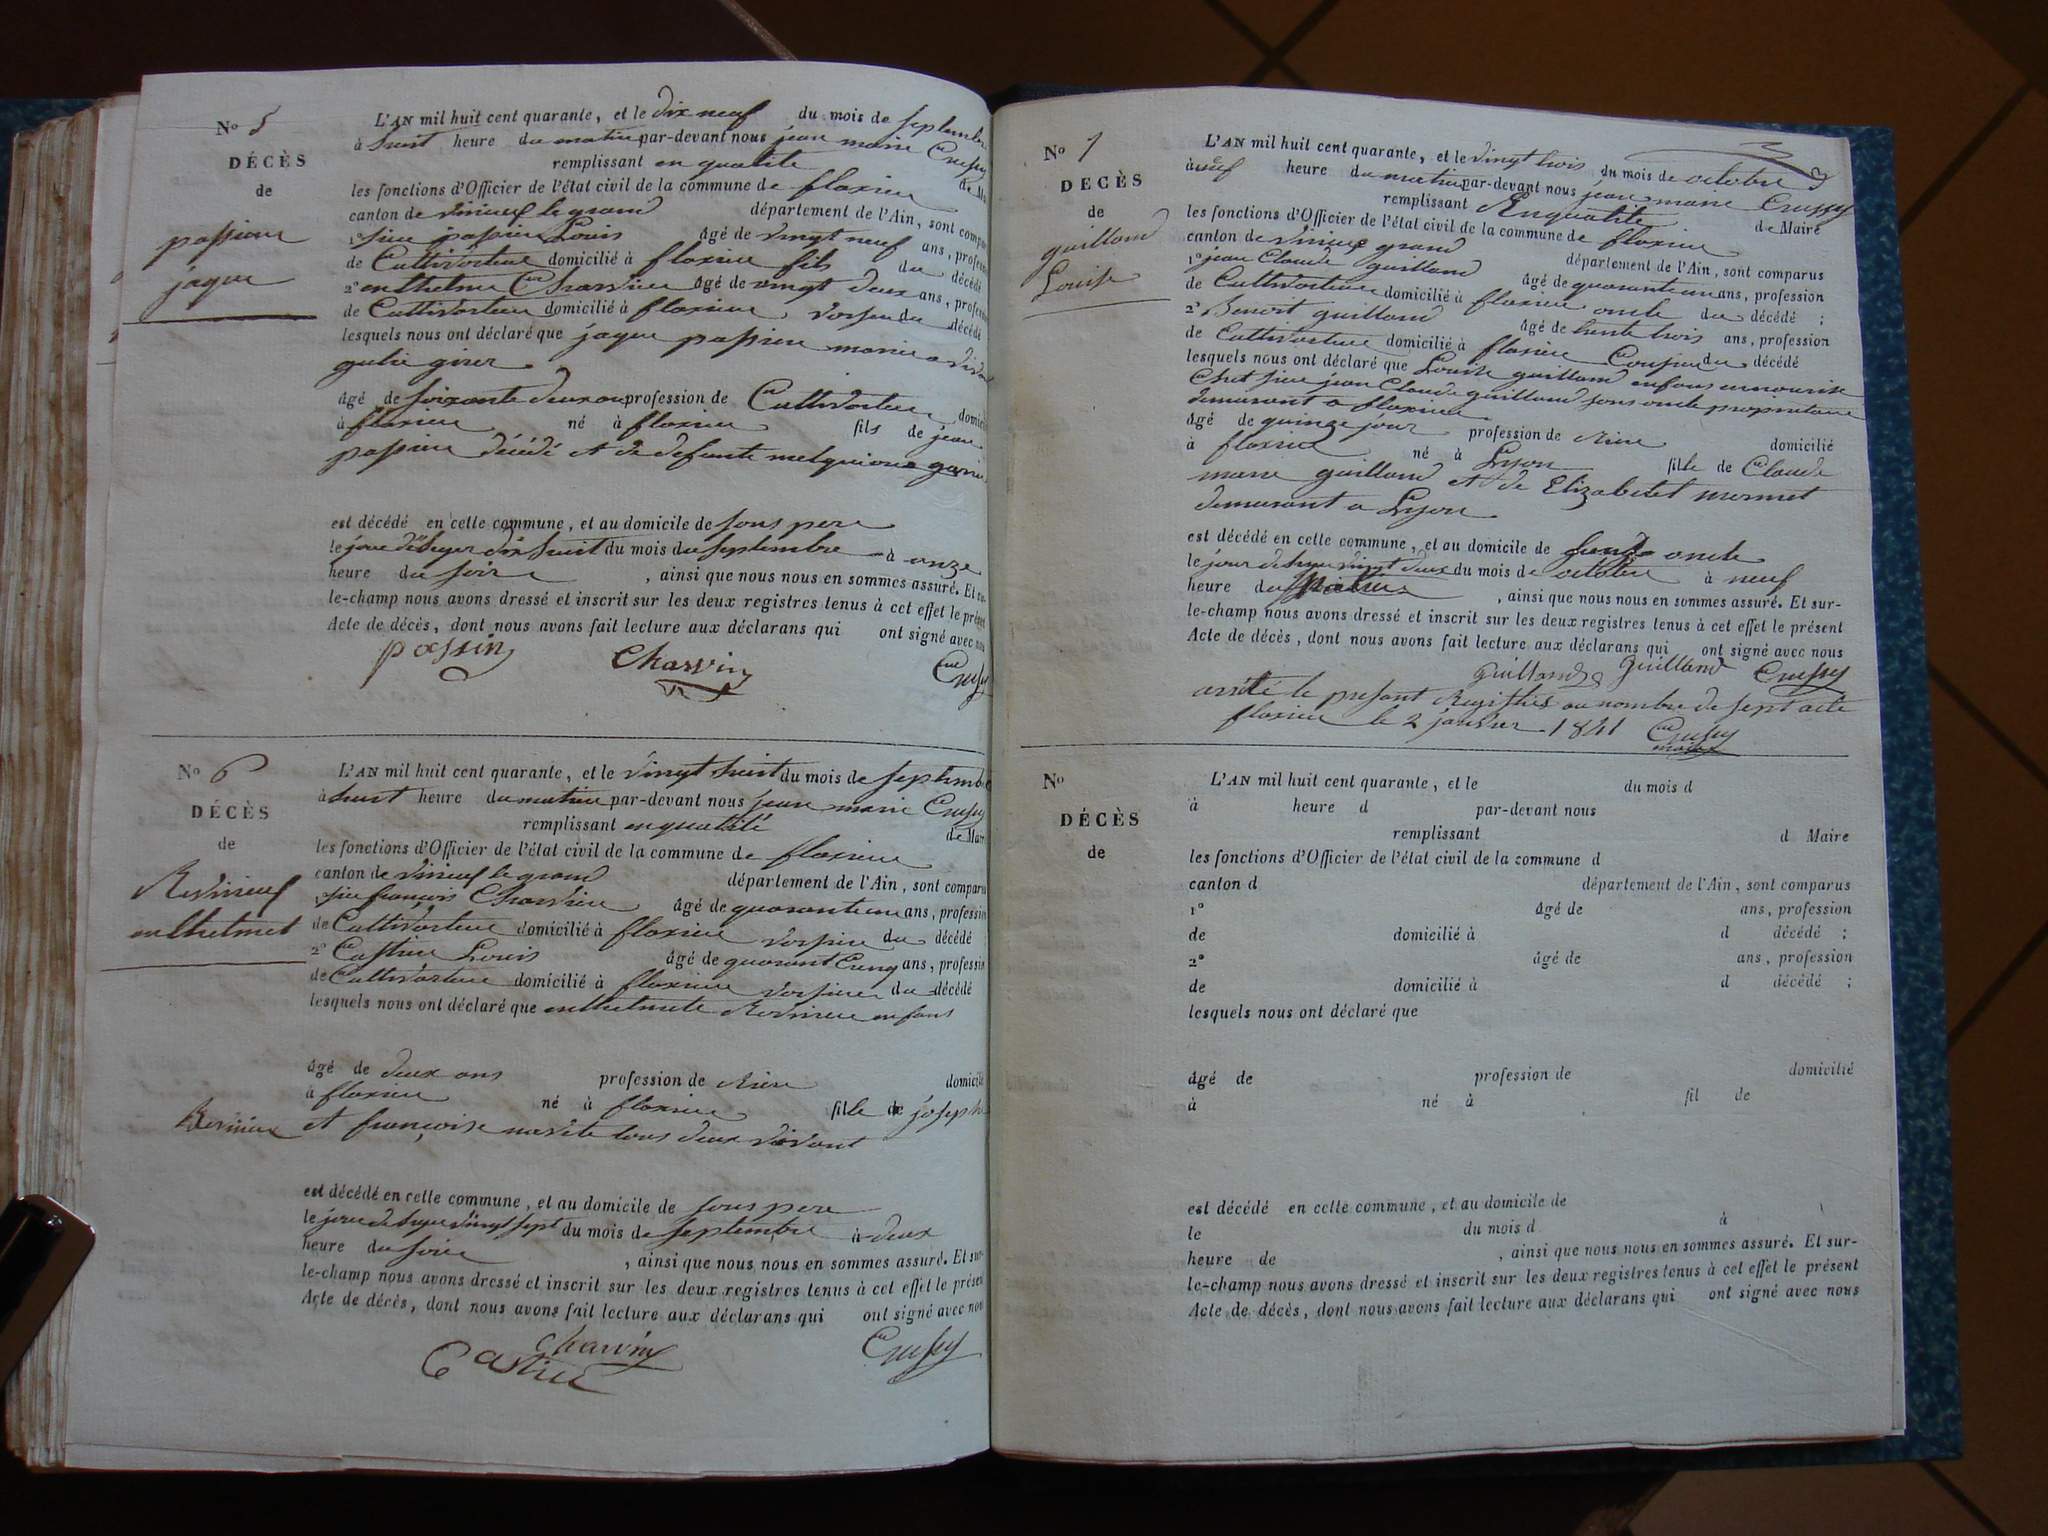 No 5
DÉCÈS
de
passieu
jaque
L'AN mil huit cent quarante, et le dix neuf du mois de septembre
à huit heure du matin par-devant nous jean marie Crussy
remplissant en qualité de Ma
les fonctions d'Officier de l'état civil de la commune de flaxieu
canton de virieux le grand département de l'Ain, sont compar
1° sieu passieu Louis âgé de vingt neuf ans, profess
de Cultivateur domicilié à flaxieu fils du décédé
2° enthelme Charvieu âgé de vingt deux ans, profess
de Cultivateur domicilié à flaxieu voisin du décédé
lesquels nous ont déclaré que jaque passieu marie a
girer
âgé de soixante deux an profession de Cultivateur domici
à flaxieu né à flaxieu fils de jean
passieu décédé et de defunte
est décédé en cette commune, et au domicile de sons pere
le jour d'hyer dix huit du mois du septembre à onze
heure du soire, ainsi que nous nous en sommes assuré. Et su-
le-champ nous avons dressé et inscrit sur les deux registres tenus à cet effet le présent
Acte de décès, dont nous avons fait lecture aux déclarans qui ont signé avec nous
passin Charvin Crussy
No 6
DÉCÈS
de
Revirieux
enthelmet
L'AN mil huit cent quarante, et le vingt huit du mois de septembre
à huit heure du matin par-devant nous jean marie Crussy
remplissant en qualité de Mair
les fonctions d'Officier de l'état civil de la commune de flaxieu
canton de virieux le grand département de l'Ain, sont comparu
1° sieu françois Charvieu âgé de quarante un ans, profession
de Cultivateur domicilié à flaxieu voisin du décédé ;
2° Castieu Louis âgé de quarant Cinq ans, professio
de Cultivateur domicilié à flaxieu voisin du décédé
lesquels nous ont déclaré que enthelmete Revirieu enfans
âgé de deux ans profession de Rien domicilié
à flaxieu né à flaxieu fille de joseph
Revirieux et françoise tous deux vivant
est décédé en cette commune, et au domicile de sons pere
le jour de hyer vingt sept du mois de septembre à deux
heure du soire, ainsi que nous nous en sommes assuré. Et sur-
le-champ nous avons dressé et inscrit sur les deux registres tenus à cet effet le présent
Acte de décès, dont nous avons fait lecture aux déclarans qui ont signé avec nous
Charvin Crussy
Castieu
3
No 7
DÉCÈS
de
guilland
Louise
L'AN mil huit cent quarante, et le vingt trois du mois de octobre
à neuf heure du matin par-devant nous jean marie Crussy
remplissant Enqualité de Maire
les fonctions d'Officier de l'état civil de la commune de flaxieu
canton de virieux grand département de l'Ain, sont comparus
1° jean Claude guilland âgé de quarante un ans, profession
de Cultivateur domicilié à flaxieu oncle du décédé ;
2° Benoit guilland âgé de trente trois ans, profession
de Cultivateur domicilié à flaxieu Cousin du décédé
lesquels nous ont déclaré que Louise guilland enfans ennourise
Chet sieu jean Claude guilland sons oncle propriétaire
demurant a flaxieu
âgé de quinze jour profession de Rien domicilié
à flaxieu né à Lyon fille de Claude
marie guilland et de Elizabetet mormet
demurant a Lyon
est décédé en cette commune, et au domicile de oncle
le jour de hyer vingt deux du mois de octobre à neuf
heure du matin, ainsi que nous nous en sommes assuré. Et sur-
le-champ nous avons dressé et inscrit sur les deux registres tenus à cet effet le présent
Acte de décès, dont nous avons fait lecture aux déclarans qui ont signé avec nous
guilland guilland Crussy
arrêté le présant Registres au nombre de sept acte
flaxieu le 2 janvier 1841 Crussy
maire
No
DÉCÈS
de
L'AN mil huit cent quarante, et le du mois d
à heure d par-devant nous
remplissant d Maire
les fonctions d'Officier de l'état civil de la commune d
canton d département de l'Ain, sont comparus
1° âgé de ans, profession
de domicilié à d décédé ;
2° âgé de ans, profession
de domicilié à d décédé ;
lesquels nous ont déclaré que
âgé de profession de domicilié
à né à fil de
est décédé en cette commune, et au domicile de
le du mois d à
heure de , ainsi que nous nous en sommes assuré. Et sur-
le-champ nous avons dressé et inscrit sur les deux registres tenus à cet effet le présent
Acte de décès, dont nous avons fait lecture aux déclarans qui ont signé avec nous